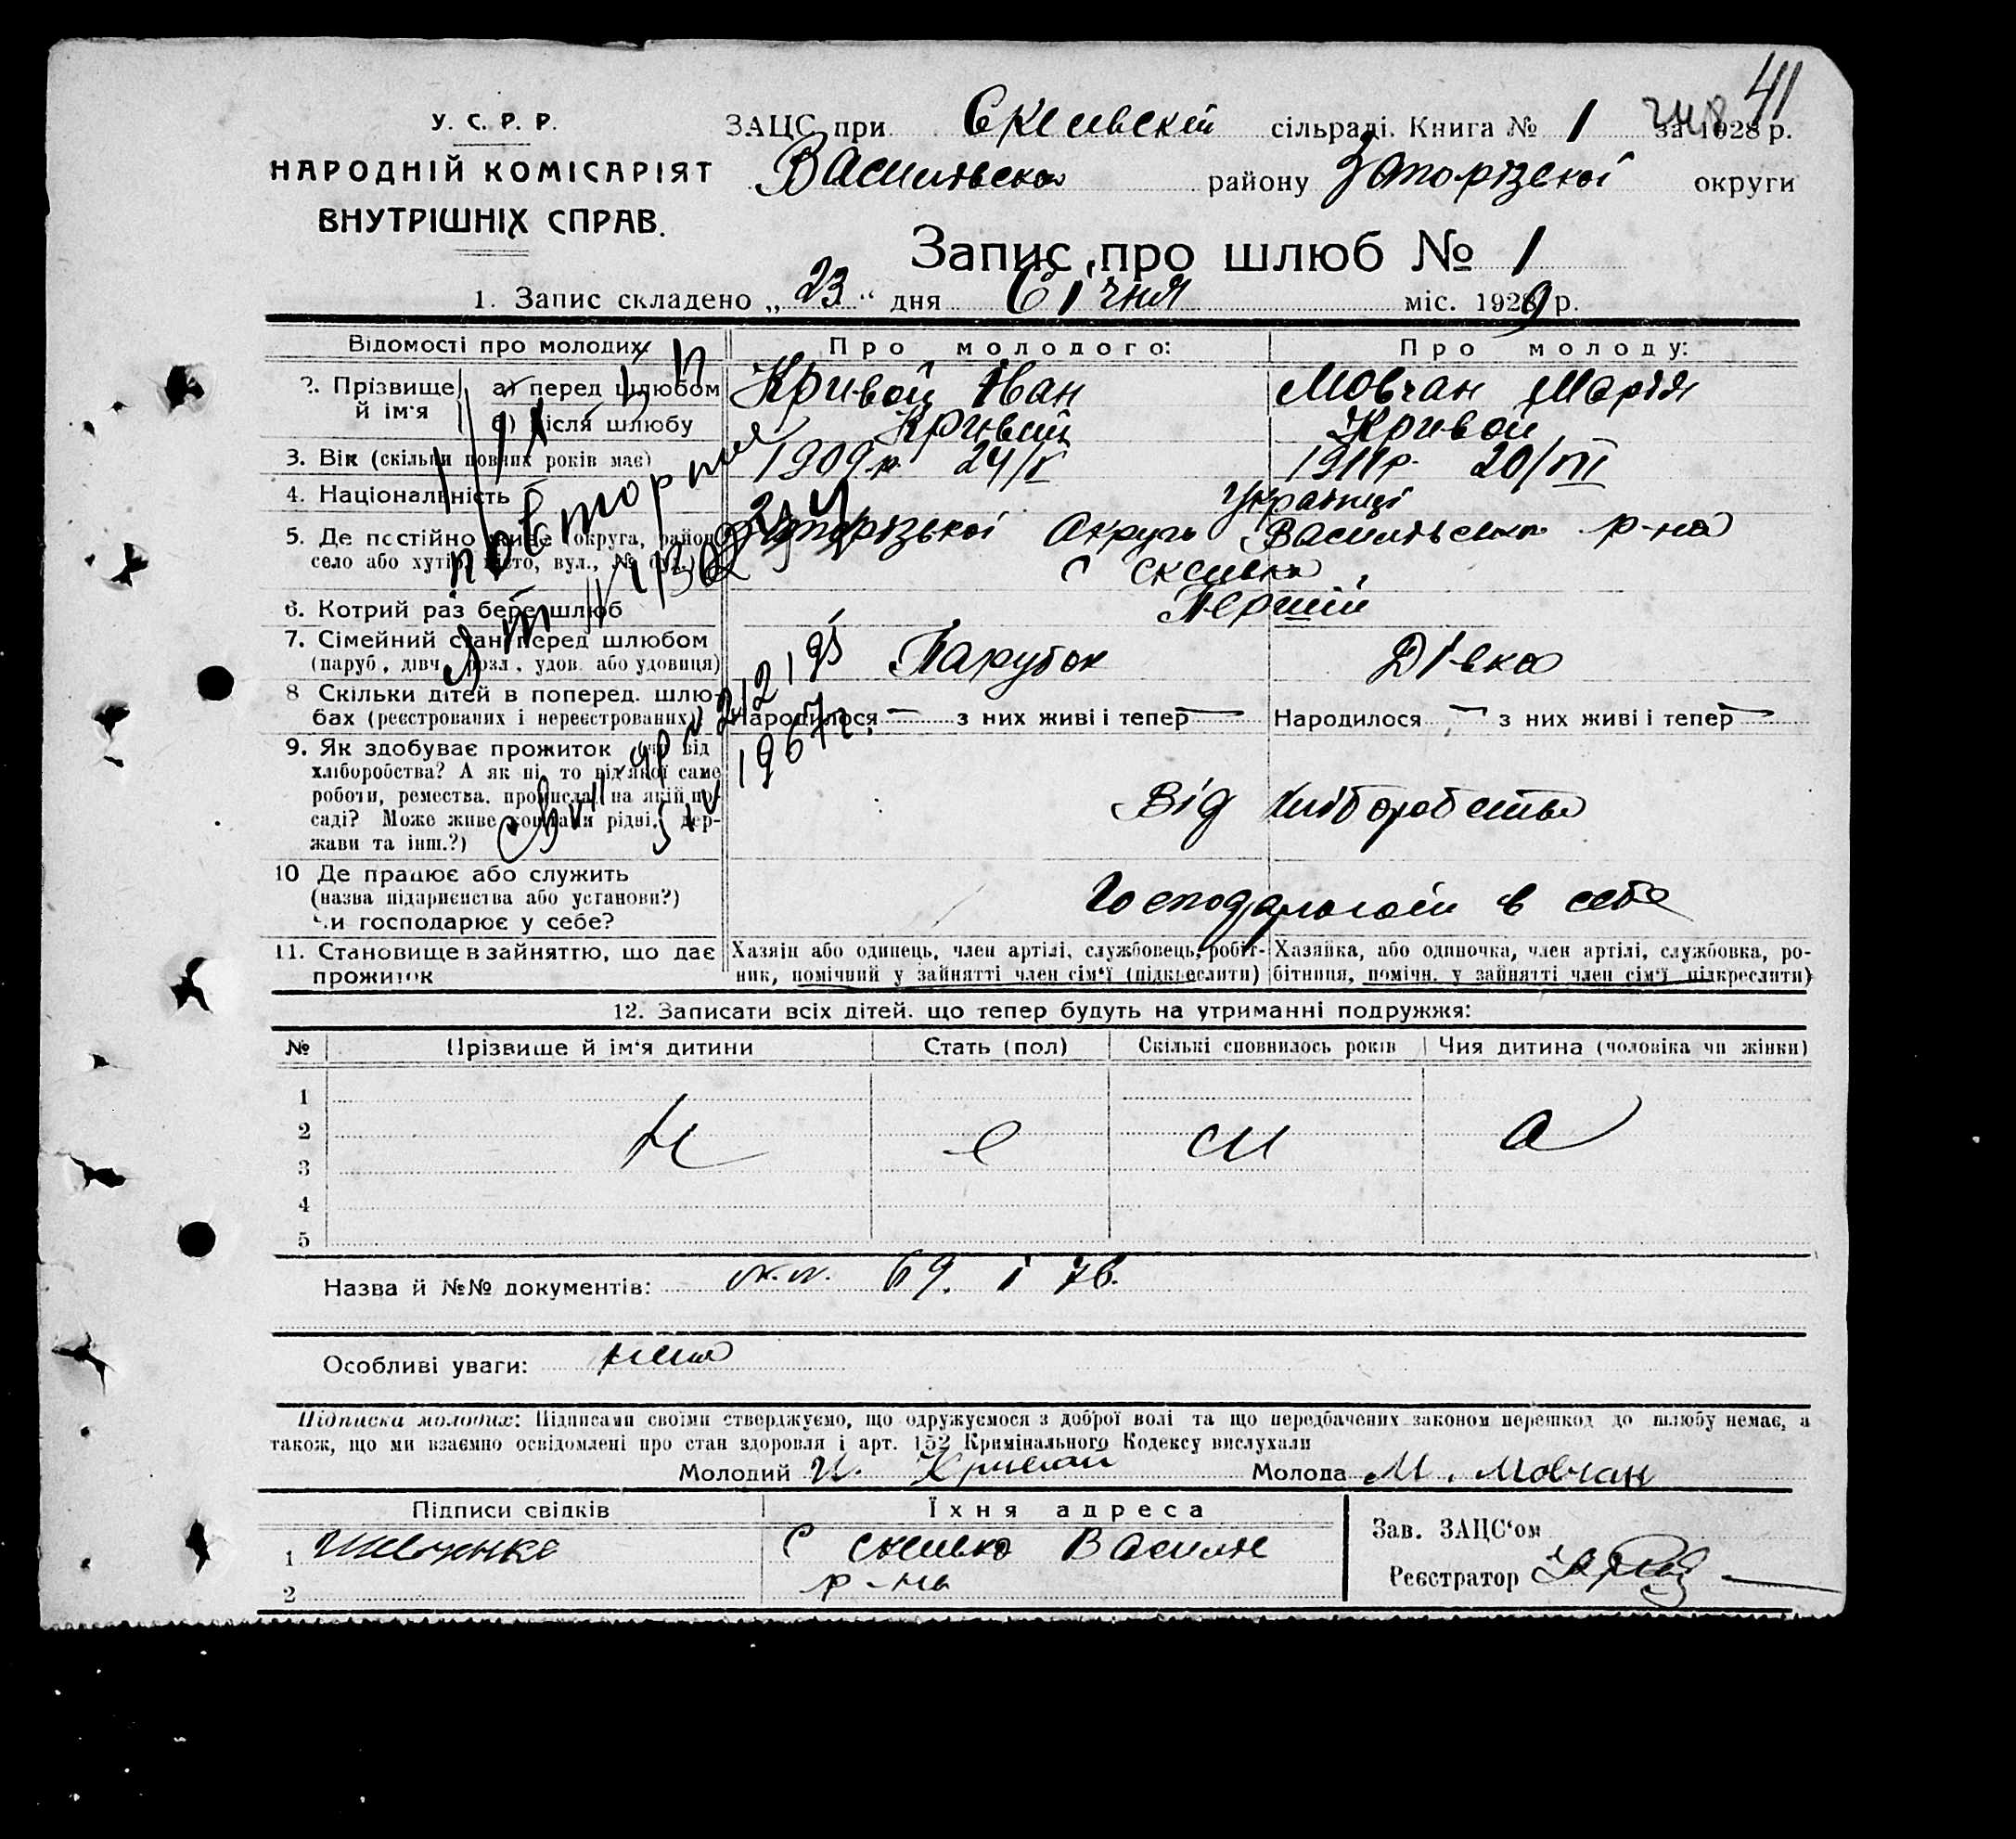 41
У. С. Р. Р.
НАРОДНІЙ КОМІСАРІЯТ
ВНУТРІШНІХ СПРАВ.
ЗАЦС при Скелевскій сільраді. Книга № 1 за 1928 р.
Василівська району Запорізскої округи
Запис про шлюб № 1
1. Запис складено „23“ дня Січня міс. 1929 р.
Відомості про молодих
Про молодого:
Про молоду:
2. Прізвище й ім'я
а) перед шлюбом
Кривой Іван
Мовчан Марія
б) після шлюбу
Кривой
Кривой
3. Вік (скільки повних років має)
1909 р. 24/V
1911 р. 20/VII
4. Національність
Українці
5. Де постійно живе (округа, район, село або хутір, місто, вул., № буд.)
Запорізької Округи Василівська р-на
с Скелька
6. Котрий раз бере шлюб
Перший
7. Сімейний стан перед шлюбом
(паруб., дівч., розл., удов. або удовиця)
Парубок
Дівка
8 Скільки дітей в поперед. шлюбах (реєстрованих і нереєстрованих)
Народилося — з них живі і тепер —
Народилося — з них живі і тепер —
9. Як здобуває прожиток (чи від
хліборобства? А як ні, то від якої саме
роботи, ремества, промисла, на якій посаді? Може живе коштами рідні, держави та інш.?)
Від хліборобства
10 Де працює або служить
(назва підприєнства або установи?)
Чи господарює у себе?
в себе
11. Становище в зайняттю, що дає
прожиток
Хазяїн або одинець, член артілі, службовець, робітник, помічний у зайнятті член сім'ї (підкреслити)
Хазяйка, або одиночка, член артілі, службовка, робітниця, помічн. у зайнятті член сім'ї підкреслити)
повторное
1967г.
12. Записати всіх дітей, що тепер будуть на утриманні подружжя:
№
Прізвище й ім'я дитини
Стать (пол)
Скількі сповнилось років
Чия дитина (чоловіка чи жінки)
1
2
3
4
5
Н е м а
Назва й №№ документів: 69. і 76.
Особливі уваги: нема
Підписка молодих: Підписами своїми стверджуємо, що одружуємося з доброї волі та що передбачених законом перешкод до шлюбу немає, а
також, що ми взаємно освідомлені про стан здоровля і арт. 152 Кримінального Кодексу вислухали
Молодий И. Кривой Молода М. Мовчан
Підписи свідків
Їхня адреса
1 Шевченко
с Скелька Василів
р-на
2
Зав. ЗАЦС'ом
Реєстратор